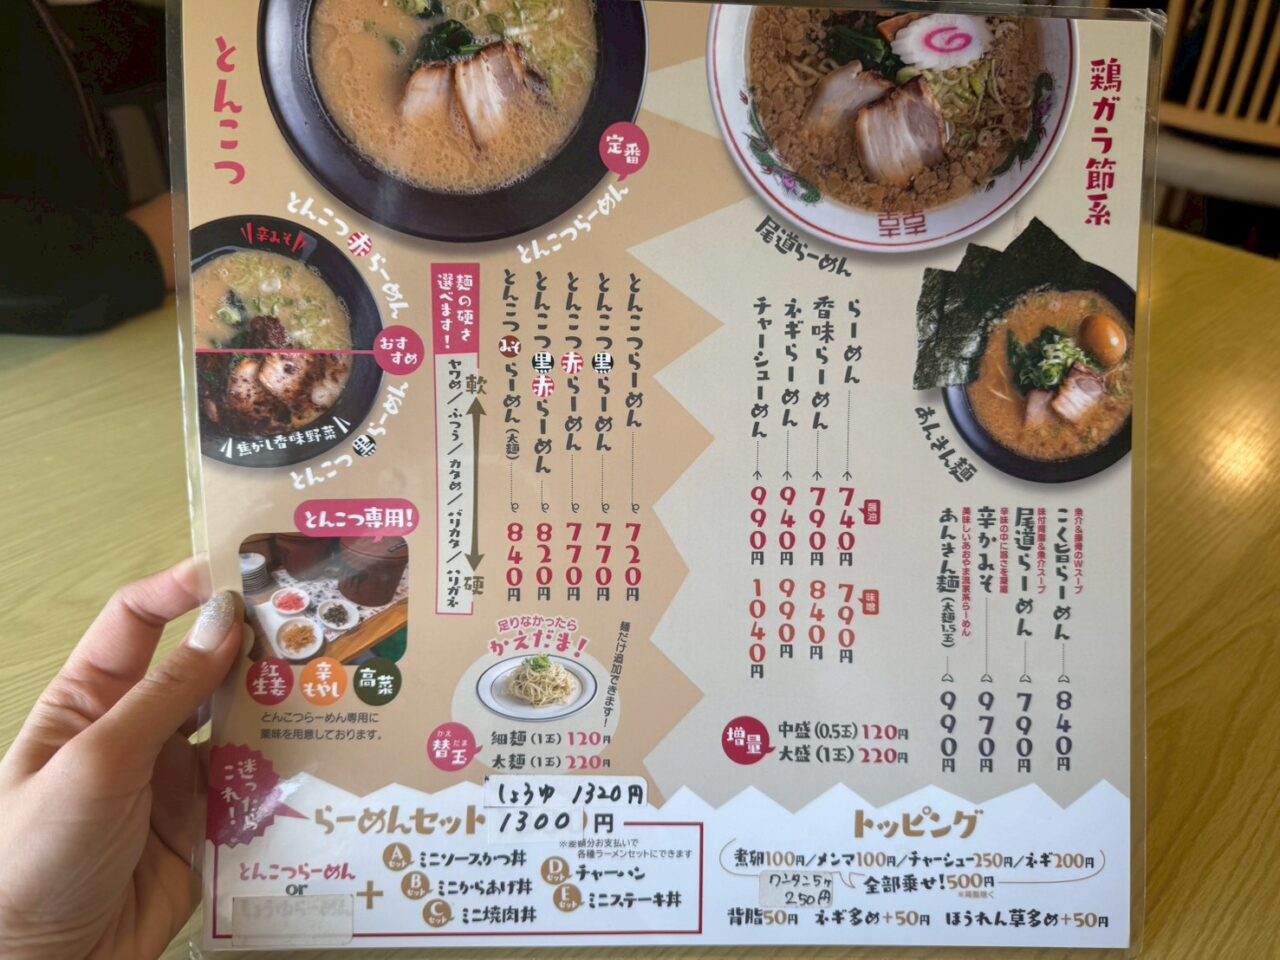 とんこつ
定番
とんこつらーめん
とんこつ赤らーめん
辛みそ
おすすめ
焦がし香味野菜
とんこつ黒らーめん
麺の硬さ
選べます!
軟
ヤワめ/ふつう/カタめ/バリカタ/ハリガネ
硬
とんこつらーめん 720円
とんこつ黒らーめん 770円
とんこつ赤らーめん 770円
とんこつ黒赤らーめん 820円
とんこつみそらーめん(太麺) 840円
とんこつ専用!
紅生姜
辛もやし
高菜
とんこつらーめん専用に
薬味を用意しております。
足りなかったら
かえだま!
麺だけ追加できます!
かえだま
替玉
細麺(1玉)120円
太麺(1玉)220円
鶏ガラ節系
尾道らーめん
あんきん麺
醤油
味噌
らーめん 740円 790円
香味らーめん 790円 840円
ネギらーめん 940円 990円
チャーシューめん 990円 1040円
増量
中盛(0.5玉)120円
大盛(1玉)220円
魚介&豚骨のWスープ
こく旨らーめん 840円
尾道らーめん 790円
辛かみそ 970円
あんきん麺(太麺1.5玉) 990円
迷ったらこれ!
らーめんセット
しょうゆ 1320円
1300円
各種ラーメンセットにできます
とんこつらーめん
or
しょうゆらーめん
+
Aセット ミニソースかつ丼
Bセット ミニからあげ丼
Cセット ミニ焼肉丼
Dセット チャーハン
Eセット ミニステーキ丼
トッピング
煮卵100円/メンマ100円/チャーシュー250円/ネギ200円
ワンタン5ヶ
250円
全部乗せ!500円
背脂50円 ネギ多め+50円 ほうれん草多め+50円